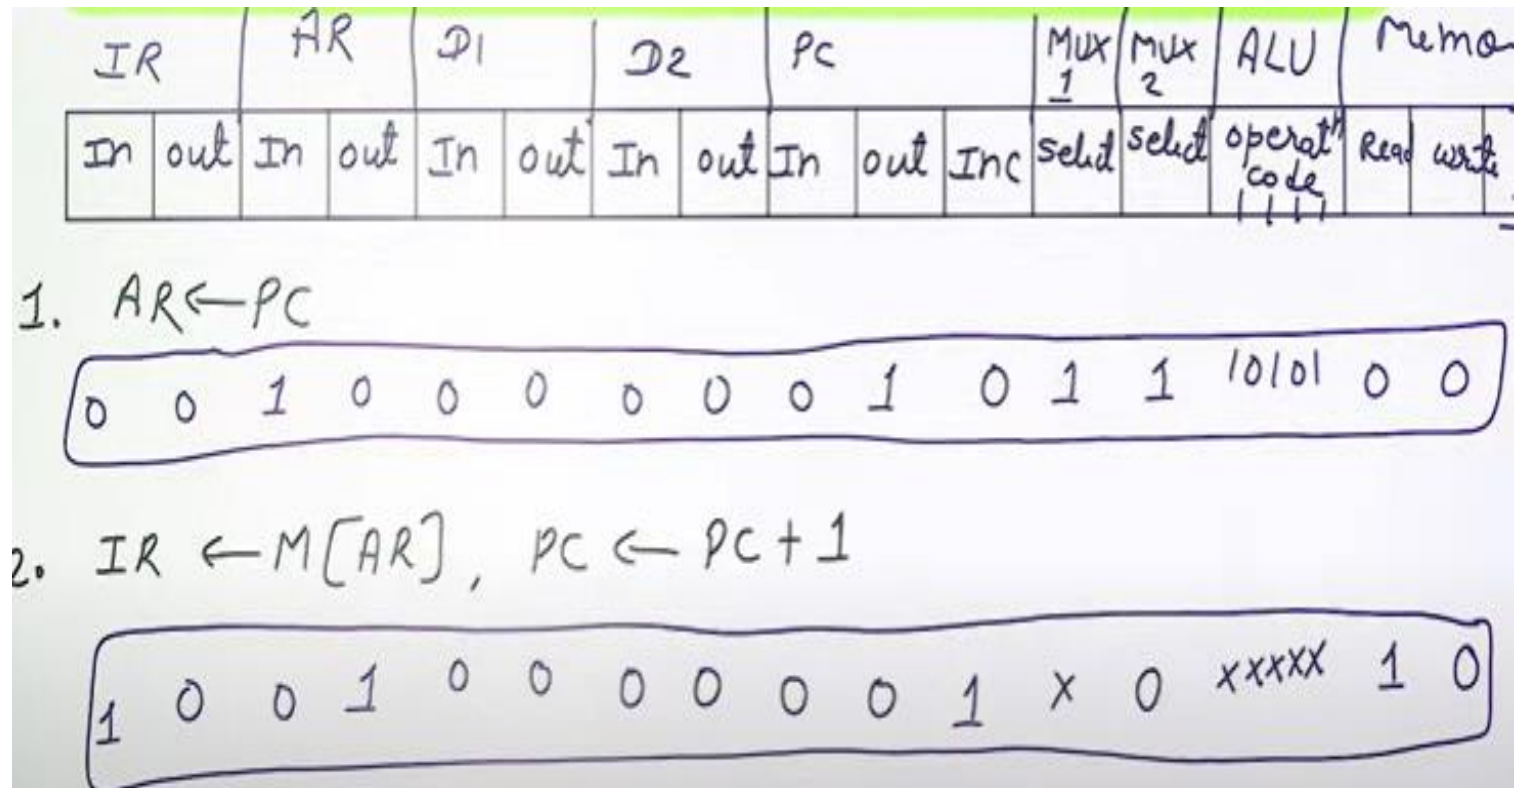 IR AR D1 D2 PC MUX 1 MUX 2 ALU Memo
In out In out In out In out In out Inc select select operatⁿ code Read write
1. AR←PC
0 0 1 0 0 0 0 0 0 1 0 1 1 10101 0 0
2. IR ← M[AR], PC ← PC + 1
1 0 0 1 0 0 0 0 0 0 1 x 0 xxxxx 1 0